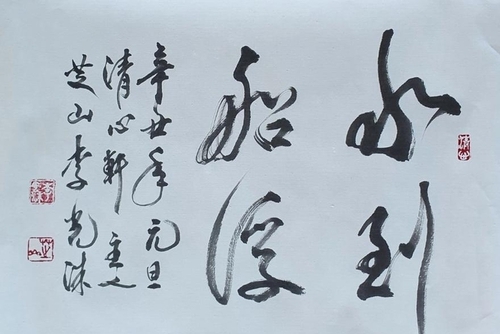 水到
船浮
辛丑年元旦
清心軒主人
芝山李光洙